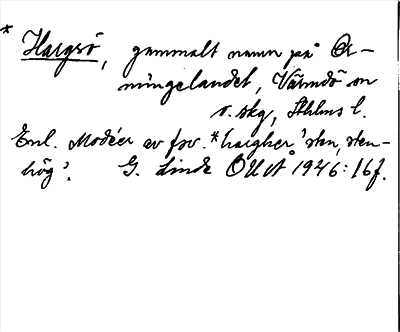 * Hargsö, gammalt namn på Ar-
mingelandet, Värmdö sn
o. skg, Sthlms l.
Enl. Modéer av fsv. *hargher 'sten, sten-
hög'. G. Linde OUÅ 1946: 16f.